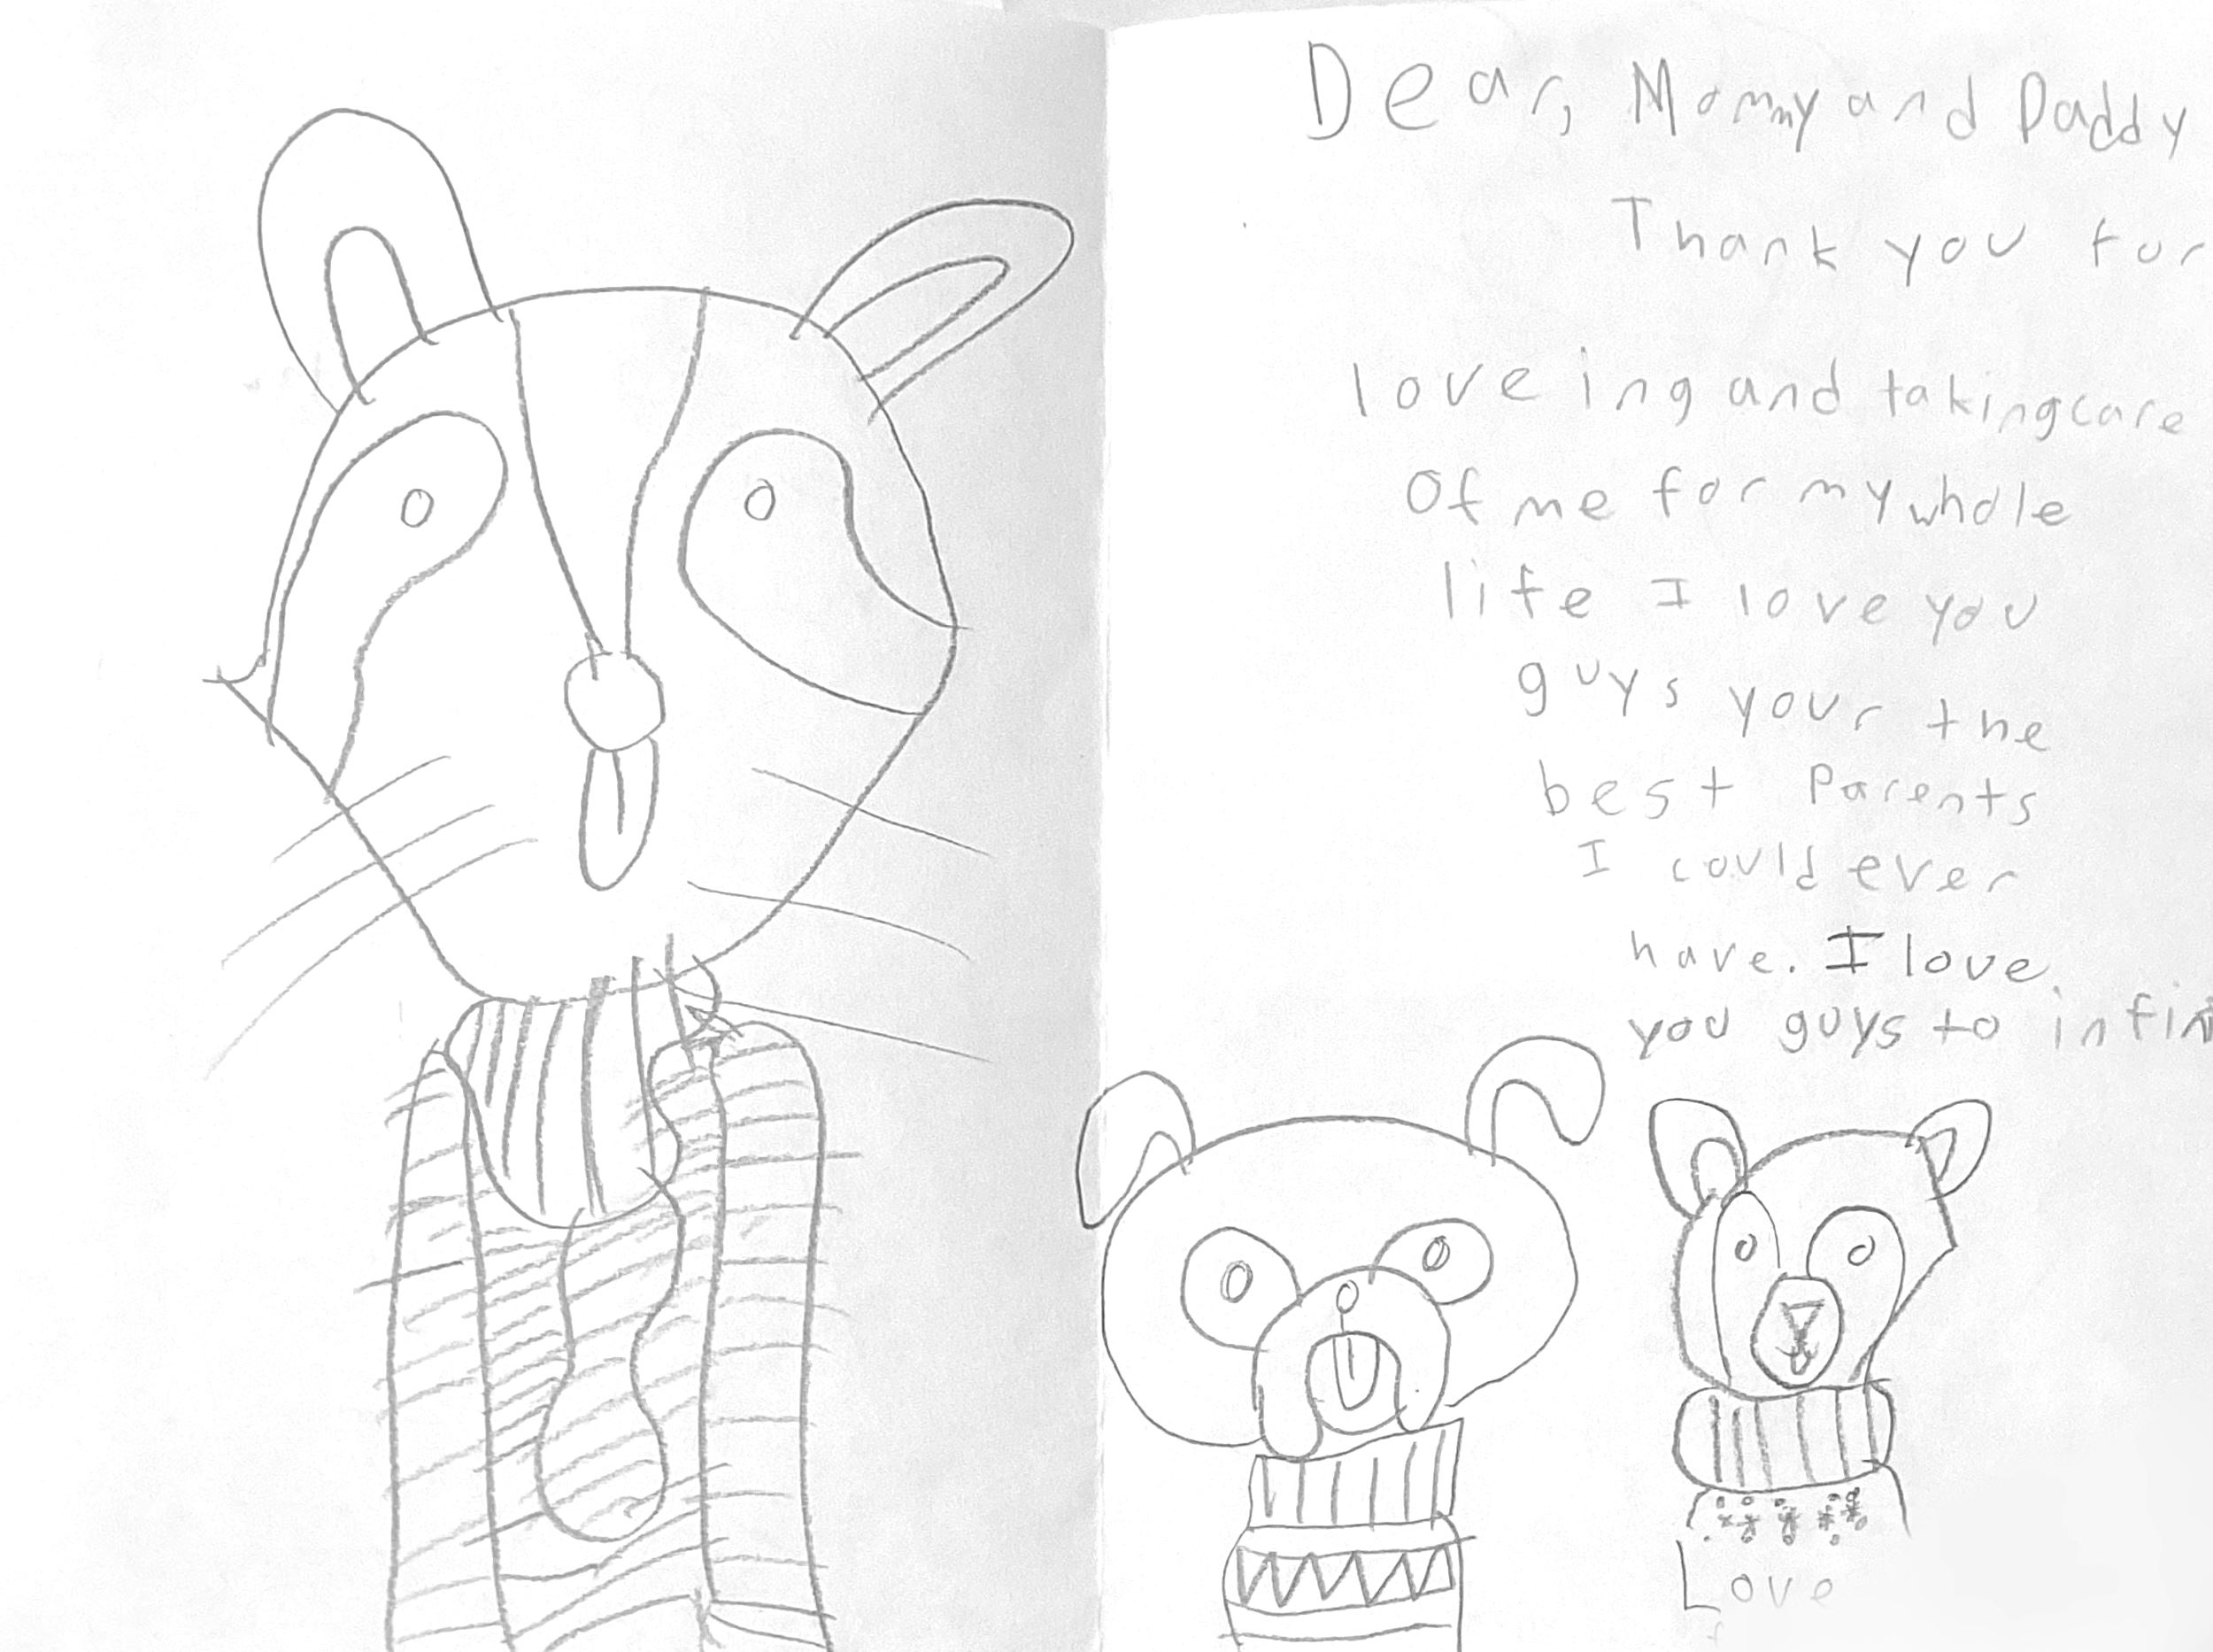 Dear, Mommy and Daddy
Thank you for
loveing and taking care
Of me for my whole
life I love you
guys your the
best Parents
I could ever
have. I love
you guys to infin
Love